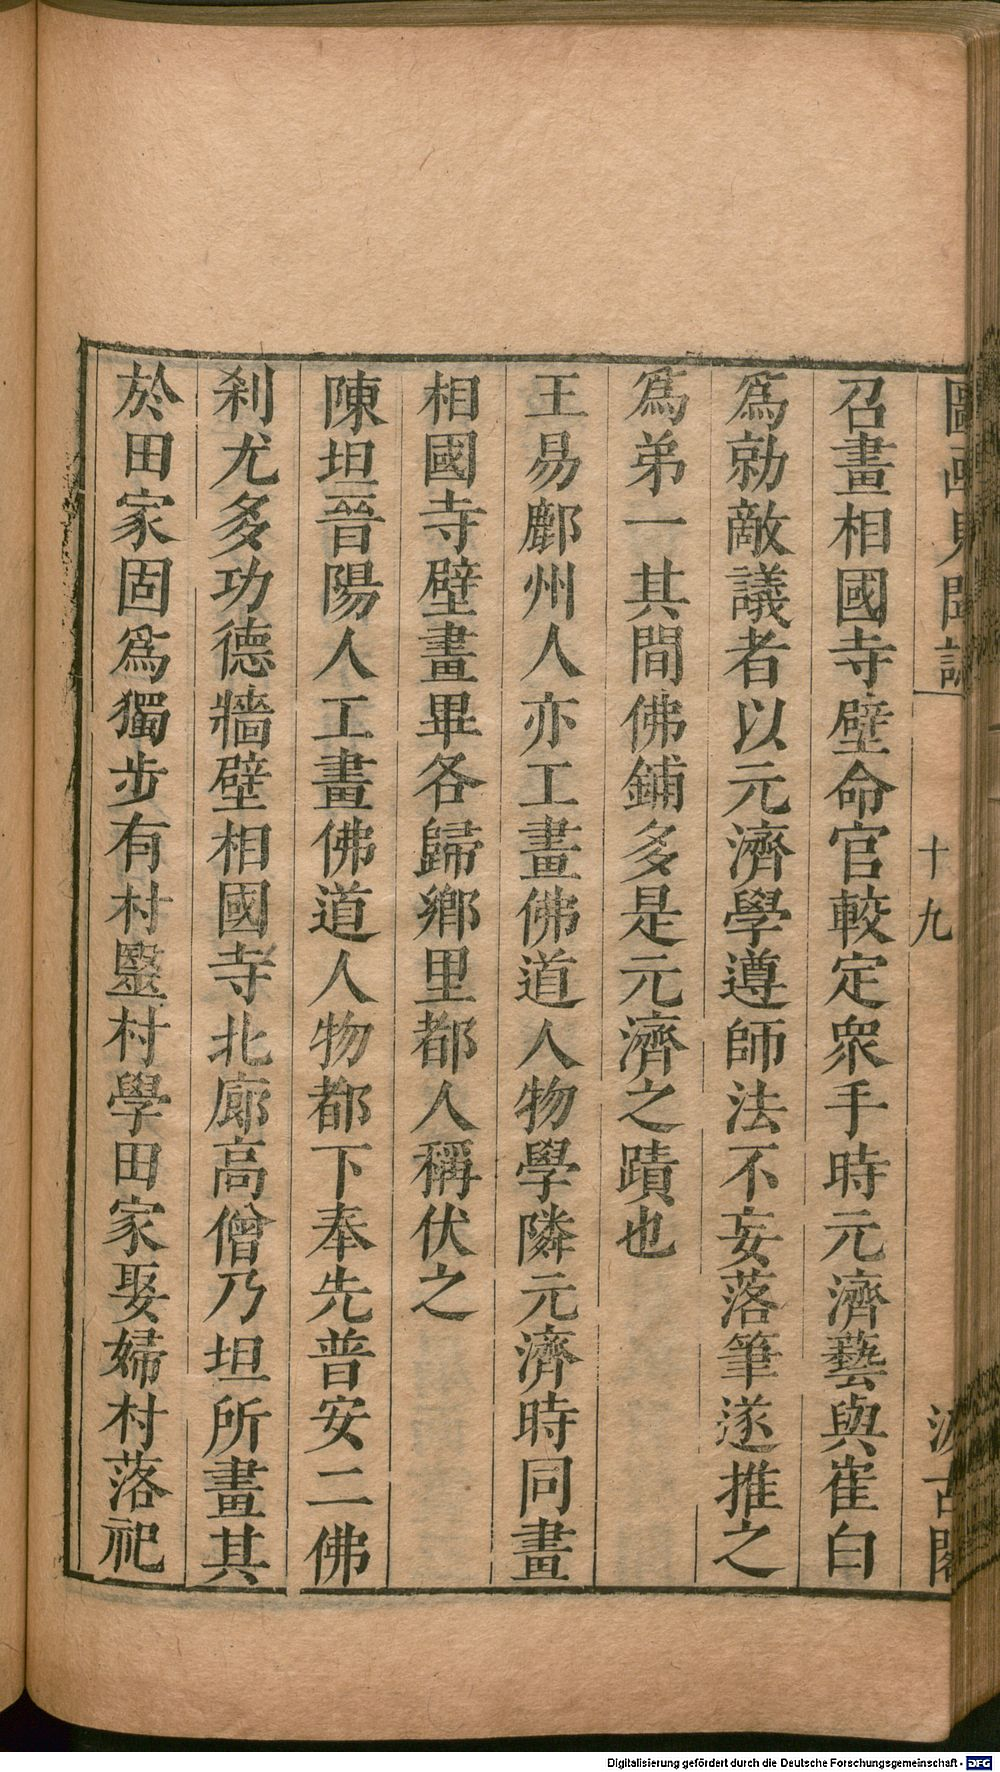 圖畫見聞誌 十九 汲古閣
召畫相國寺壁命官較定衆手時元濟藝與崔白
爲勍敵議者以元濟學遵師法不妄落筆遂推之
爲弟一其間佛鋪多是元濟之蹟也
王易鄜州人亦工畫佛道人物學隣元濟時同畫
相國寺壁畫畢各歸鄉里都人稱伏之
陳坦晉陽人工畫佛道人物都下奉先普安二佛
刹尤多功德牆壁相國寺北廊高僧乃坦所畫其
於田家固爲獨步有村毉村學田家娶婦村落祀
Digitalisierung gefördert durch die Deutsche Forschungsgemeinschaft - DFG